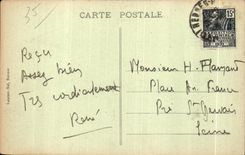 35
CARTE POSTALE
15
Reçu
Assez bien
Très cordialement
René
Monsieur H.
Place An. France
Pré St Gervais
Seine